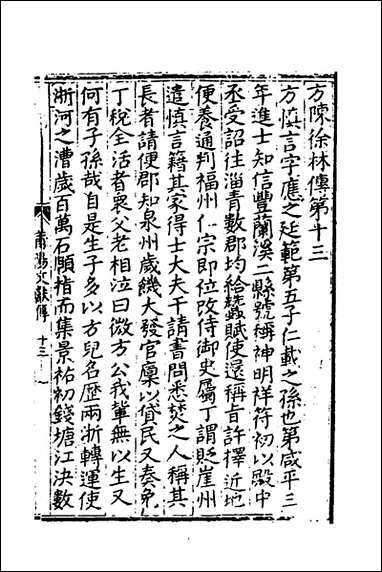 方陳徐林傳第十三
方慎言字應之廷範第五子仁載之孫也第咸平三
年進士知信豐蘭溪二縣號稱神明祥符初以殿中
丞受詔往淄青數郡均給蠶賦使還稱旨許擇近地
便養通判福州仁宗即位改侍御史屬丁謂貶崖州
遣慎言籍其家得士大夫干請書問悉焚之人稱其
長者請便郡知泉州歲饑大發官廩以貸民又奏免
丁稅全活者眾父老相泣曰微方公我輩無以生又
何有子孫哉自是生子多以方兒名歷兩浙轉運使
浙河之漕歲百萬石頤指而集景祐初錢塘江決數
莆陽文獻傳
十三